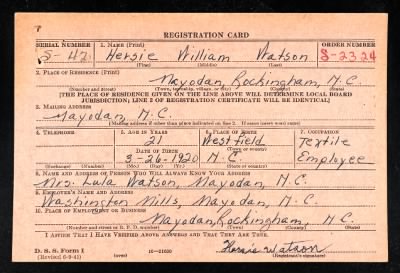 REGISTRATION CARD
SERIAL NUMBER 1. NAME (Print) ORDER NUMBER
S-42 Hersie William Watson S-2324
(First) (Middle) (Last)
2. PLACE OF RESIDENCE (Print)
Mayodan, Rockingham, N.C.
(Number and street) (Town, township, village, or city) (County) (State)
[THE PLACE OF RESIDENCE GIVEN ON THE LINE ABOVE WILL DETERMINE LOCAL BOARD
JURISDICTION; LINE 2 OF REGISTRATION CERTIFICATE WILL BE IDENTICAL]
3. MAILING ADDRESS
Mayodan, N.C.
[Mailing address if other than place indicated on line 2. If same insert word same]
4. TELEPHONE 5. AGE IN YEARS 6. PLACE OF BIRTH 7. OCCUPATION
21 Westfield Textile
DATE OF BIRTH (Town or county)
3-26-1920 N.C. Employee
(Exchange) (Number) (Mo.) (Day) (Yr.) (State or country)
8. NAME AND ADDRESS OF PERSON WHO WILL ALWAYS KNOW YOUR ADDRESS
Mrs. Lula Watson, Mayodan, N.C.
9. EMPLOYER'S NAME AND ADDRESS
Washington Mills, Mayodan, N.C.
10. PLACE OF EMPLOYMENT OR BUSINESS
Mayodan, Rockingham, N.C.
(Number and street or R. F. D. number) (Town) (County) (State)
I AFFIRM THAT I HAVE VERIFIED ABOVE ANSWERS AND THAT THEY ARE TRUE.
D. S. S. Form 1 Hersie Watson
(Revised 6-9-41) 16-21630 (Registrant's signature)